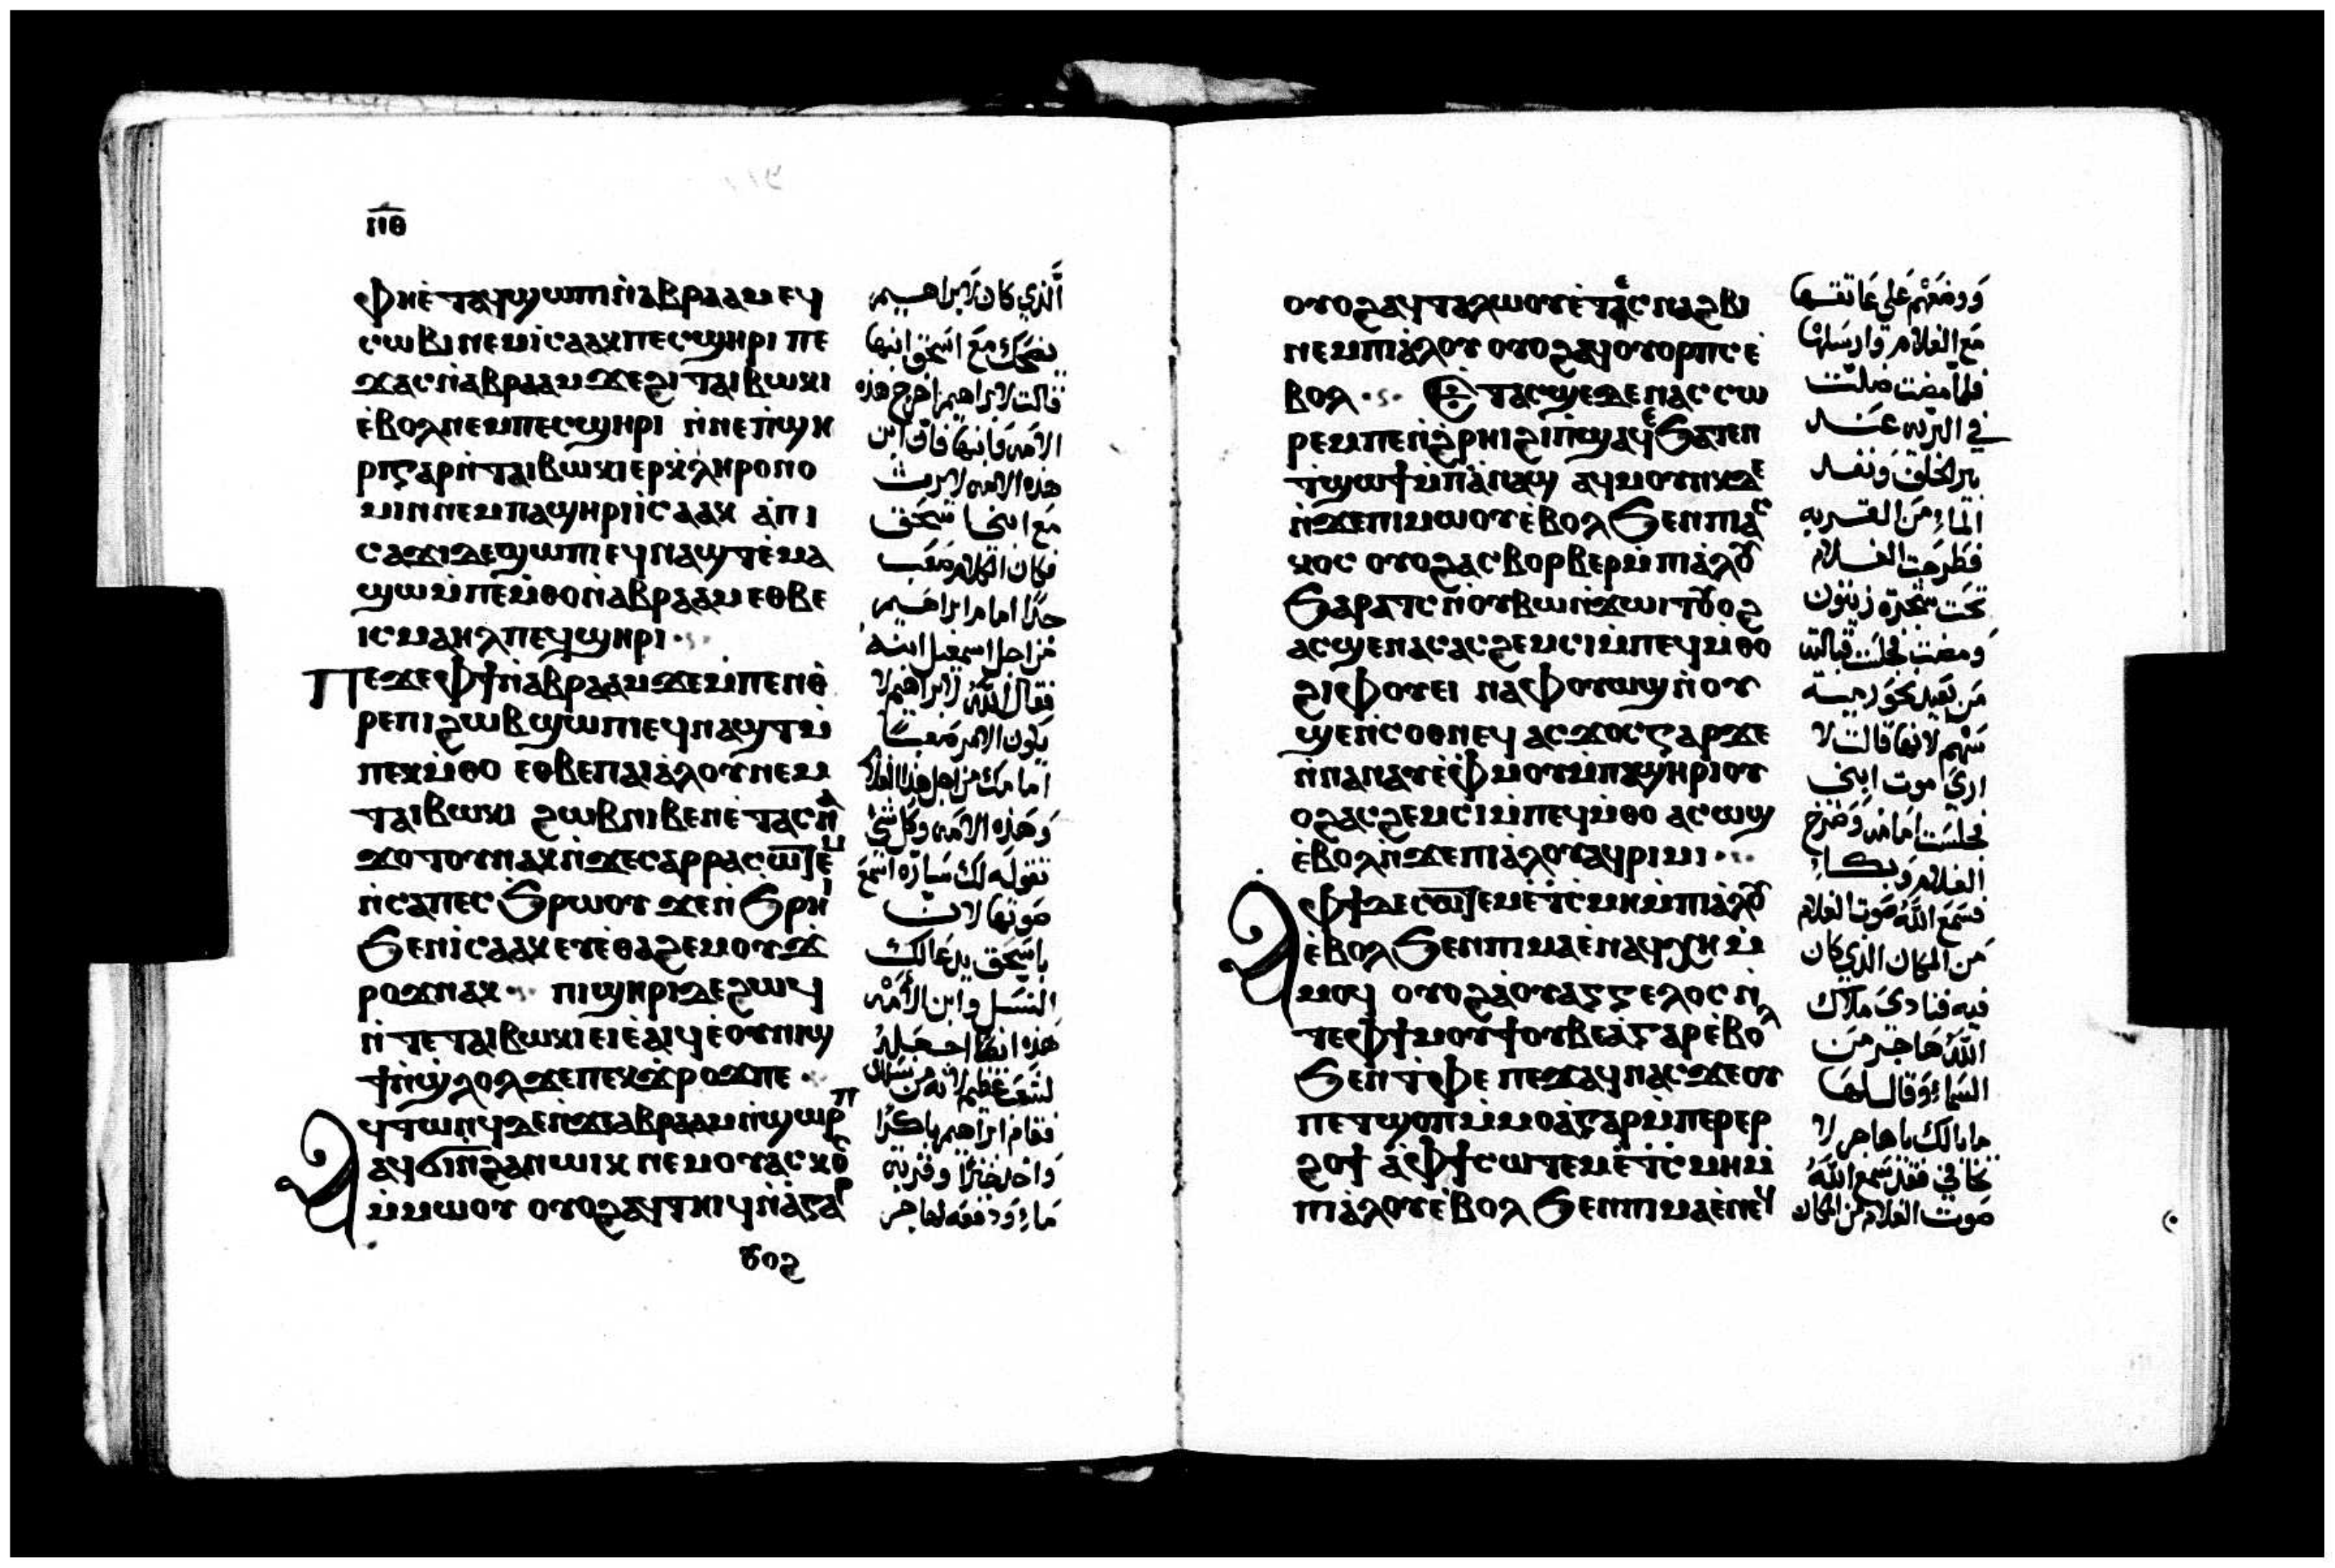 ⲡⲑ
ⲫⲏⲉ̀ⲧⲁϥϣⲱⲡⲓ ⲛ̀ⲁⲃⲣⲁⲁⲙ ⲉϥ
ⲥⲱⲃⲓ ⲛⲉⲙ ⲓ̀ⲥⲁⲁⲕ ⲡⲉⲥϣⲏⲣⲓ ⲡⲉ
ϫⲁⲥ ⲛ̀ⲁⲃⲣⲁⲁⲙ ϫⲉ ϩⲓ ⲧⲁⲓⲃⲱⲕⲓ
ⲉ̀ⲃⲟⲗ ⲛⲉⲙ ⲡⲉⲥϣⲏⲣⲓ ⲛ̀ⲛⲉ ⲡ̀ϣⲏ
ⲣⲓ ⲅⲁⲣ ⲛ̀ⲧⲁⲓⲃⲱⲕⲓ ⲉⲣⲕ̀ⲗⲏⲣⲟⲛⲟ
ⲙⲓⲛ ⲛⲉⲙ ⲡⲁϣⲏⲣⲓ ⲓ̀ⲥⲁⲁⲕ ⲁ̀ ⲡⲓ
ⲥⲁϫⲓ ⲇⲉ ϣⲱⲡⲓ ⲉϥⲛⲁϣⲧ ⲉ̀ⲙⲁ
ϣⲱ ⲙ̀ⲡⲉⲙ̀ⲑⲟ ⲛ̀ⲁⲃⲣⲁⲁⲙ ⲉⲑⲃⲉ
ⲓⲥⲙⲁⲏⲗ ⲡⲉϥϣⲏⲣⲓ
Ⲡⲉϫⲉ ⲫϯ ⲛ̀ⲁⲃⲣⲁⲁⲙ ϫⲉ ⲙ̀ⲡⲉⲛⲑ̀
ⲣⲉ ⲡⲓϩⲱⲃ ϣⲱⲡⲓ ⲉϥⲛⲁϣⲧ ⲙ̀
ⲡⲉⲕⲙ̀ⲑⲟ ⲉⲑⲃⲉ ⲡⲁⲓⲁ̀ⲗⲟⲩ ⲛⲉⲙ
ⲧⲁⲓⲃⲱⲕⲓ ϩⲱⲃ ⲛⲓⲃⲉⲛ ⲉ̀ⲧⲁⲥⲛⲁ
ϫⲟⲧⲟⲩ ⲛⲁⲕ ⲛ̀ϫⲉ ⲥⲁⲣⲣⲁ ⲥⲱⲧⲉⲙ
ⲛ̀ⲥⲁ ⲡⲉⲥϧⲣⲱⲟⲩ ϫⲉ ⲛ̀ϧⲣⲏⲓ
ϧⲉⲛ ⲓ̀ⲥⲁⲁⲕ ⲉⲩⲉ̀ⲑⲁϩⲉⲙ ⲟⲩϫ
ⲣⲟϫ ⲛⲁⲕ ⲡⲓϣⲏⲣⲓ ⲇⲉ ϩⲱϥ
ⲛ̀ⲧⲉ ⲧⲁⲓⲃⲱⲕⲓ ⲉⲓⲉ̀ⲁⲓϥ ⲉ̀ⲟⲩⲛⲓϣ
ϯ ⲛ̀ϣ̀ⲗⲟⲗ ϫⲉ ⲡⲉⲕϫⲣⲟϫ ⲡⲉ
ϥⲧⲱⲛϥ ⲇⲉ ⲛ̀ϫⲉ ⲁⲃⲣⲁⲁⲙ ⲛ̀ϣⲱⲣⲡ
Ⲁ ⲁϥϭⲓ ⲛ̀ϩⲁⲛⲱⲓⲕ ⲛⲉⲙ ⲟⲩⲁⲥⲕⲟⲥ
ⲙ̀ⲙⲱⲟⲩ ⲟⲩⲟϩ ⲁϥⲧⲏⲓϥ ⲛ̀ⲁ̀ⲅⲁⲣ
ⲟⲩⲟϩ
الَّذي كان لابراهيم
يضحك مع اسحق ابنها
قالت لابراهيم اخرج هذه
الامه وابنها فان ابن
هذه الامه لا يرث
مع ابني اسحق
فكان الكلام صعب
جدًا امام ابراهيم
من اجل اسمعيل ابنه
فقال الله لابراهيم لا
يكون الامر صعبًا
امامك من اجل هذا الغلام
وهذه الامه وكل شي
تقوله لك ساره اسمع
صوتها لان
باسحق يدعا لك
النسل وابن الامه
هذه انها اجعله
لشعب عظيم لانه من نسلك
فقام ابراهيم باكرًا
واخذ خبزًا وقربه
ماء ودفعه لهاجر
ⲟⲩⲟϩ ⲁϥⲧⲁⲗⲱⲟⲩ ⲉ̀ⲧⲉⲥⲛⲁϩⲃⲓ
ⲛⲉⲙ ⲡⲓⲁ̀ⲗⲟⲩ ⲟⲩⲟϩ ⲁϥⲟⲩⲟⲣⲡⲥ ⲉ̀
ⲃⲟⲗ Ⲉⲧⲁⲥϣⲉ ⲇⲉ ⲛⲁⲥ ⲥⲱ
ⲣⲉⲙ ⲡⲉ ⲛ̀ϩ̀ⲣⲏⲓ ϩⲓ ⲡ̀ϣⲁϥⲉ ϧⲁⲧⲉⲛ
ⲧϣⲱϯ ⲙ̀ⲡⲁ̀ⲛⲁϣ ⲁϥⲙⲟⲩⲛⲕ ⲇⲉ
ⲛ̀ϫⲉ ⲡⲓⲙⲱⲟⲩ ⲉ̀ⲃⲟⲗ ϧⲉⲛ ⲡⲓⲁⲥ
ⲕⲟⲥ ⲟⲩⲟϩ ⲁⲥⲃⲟⲣⲃⲉⲣ ⲙ̀ⲡⲓⲁ̀ⲗⲟⲩ
ϧⲁⲣⲁⲧⲥ ⲛ̀ⲟⲩⲃⲱ ⲛ̀ϫⲱⲓⲧ ⲟⲩⲟϩ
ⲁⲥϣⲉ ⲛⲁⲥ ⲁⲥϩⲉⲙⲥⲓ ⲙ̀ⲡⲉϥⲙ̀ⲑⲟ
ϩⲓⲫⲟⲩⲉⲓ ⲛⲁ ⲫⲟⲩⲱϣ ⲛ̀ⲟⲩ
ϣⲉ ⲛ̀ⲥⲟⲑⲛⲉϥ ⲁⲥϫⲟⲥ ⲅⲁⲣ ϫⲉ
ⲛ̀ⲛⲁⲛⲁⲩ ⲉ̀ⲫⲙⲟⲩ ⲙ̀ⲡⲁϣⲏⲣⲓ ⲟⲩ
ⲟϩ ⲁⲥϩⲉⲙⲥⲓ ⲙ̀ⲡⲉϥⲙ̀ⲑⲟ ⲁⲥⲱϣ
ⲉ̀ⲃⲟⲗ ⲛ̀ϫⲉ ⲡⲓⲁ̀ⲗⲟⲩ ⲁϥⲣⲓⲙⲓ
Ⲁ ⲫϯ ⲇⲉ ⲥⲱⲧⲉⲙ ⲉ̀ⲧ̀ⲥⲙⲏ ⲙ̀ⲡⲓⲁ̀ⲗⲟⲩ
ⲉ̀ⲃⲟⲗ ϧⲉⲛ ⲡⲓⲙⲁ ⲉ̀ⲛⲁϥⲭⲏ ⲙ̀
ⲙⲟϥ ⲟⲩⲟϩ ⲁ̀ ⲟⲩⲁⲅⲅⲉⲗⲟⲥ ⲛ̀
ⲧⲉ ⲫϯ ⲙⲟⲩϯ ⲟⲩⲃⲉ ⲁ̀ⲅⲁⲣ ⲉ̀ⲃⲟⲗ
ϧⲉⲛ ⲧ̀ⲫⲉ ⲡⲉϫⲁϥ ⲛⲁⲥ ϫⲉ ⲟⲩ
ⲡⲉⲧϣⲟⲡ ⲙ̀ⲙⲟ ⲁ̀ⲅⲁⲣ ⲙ̀ⲡⲉⲣⲉⲣ
ϩⲟϯ ⲁ̀ ⲫϯ ⲥⲱⲧⲉⲙ ⲉ̀ⲧ̀ⲥⲙⲏ ⲙ̀
ⲡⲓⲁ̀ⲗⲟⲩ ⲉ̀ⲃⲟⲗ ϧⲉⲛ ⲡⲓⲙⲁ ⲉ̀ⲛⲉϥ
ووضعهم على عاتقها
مع الغلام وارسلها
فلما مضت ضلت
في البريه عند
بير الحلف ونفد
الماء من القربه
فطرحت الغلام
تحت شجرة زيتون
ومضت فجلست قبالته
من بعيد نحو رمية
سهم لانها قالت لا
ارى موت ابني
فجلست امامه وصرخ
الغلام وبكاء
فسمع الله صوت الغلام
من المكان الذي كان
فيه فنادى ملاك
الله هاجر من
السماء وقال لها
ما بالك يا هاجر لا
تخافي فقد سمع الله
صوت الغلام من المكان